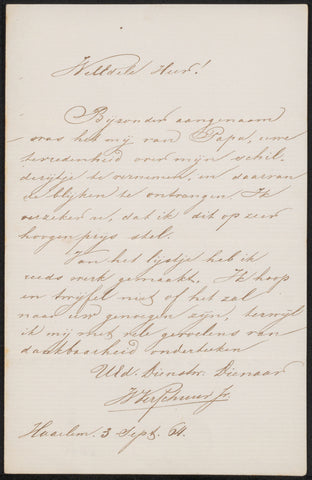 WelEdele Heer!
Bijzonder aangenaam
was het mij van Papa, uwe
tevredenheid over mijn schil-
derijtje te vernemen, en daarvan
de blijken te ontvangen. Ik
verzeker u, dat ik dit op zeer
hoogen prijs stel.
Van het lijstje heb ik
reeds werk gemaakt. Ik hoop
en twijfel niet of het zal
naar uw genoegen zijn, terwijl
ik mij met vele gevoelens van
dankbaarheid onderteeken
UEd. Dienstw. Dienaar
W Verschuur Jr.
Haarlem 3 Sept. 64.